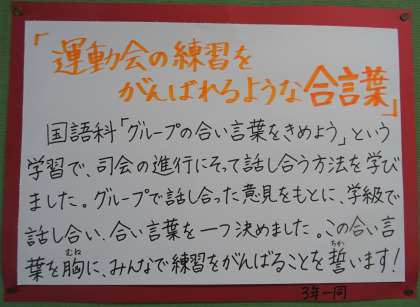 「運動会の練習を
がんばれるような合言葉」
国語科「グループの合い言葉をきめよう」という
学習で、司会の進行にそって話し合う方法を学び
ました。グループで話し合った意見をもとに、学級で
話し合い、合い言葉を一つ決めました。この合い言
葉を胸に、みんなで練習をがんばることを誓います!
むね
ちか
3年一同